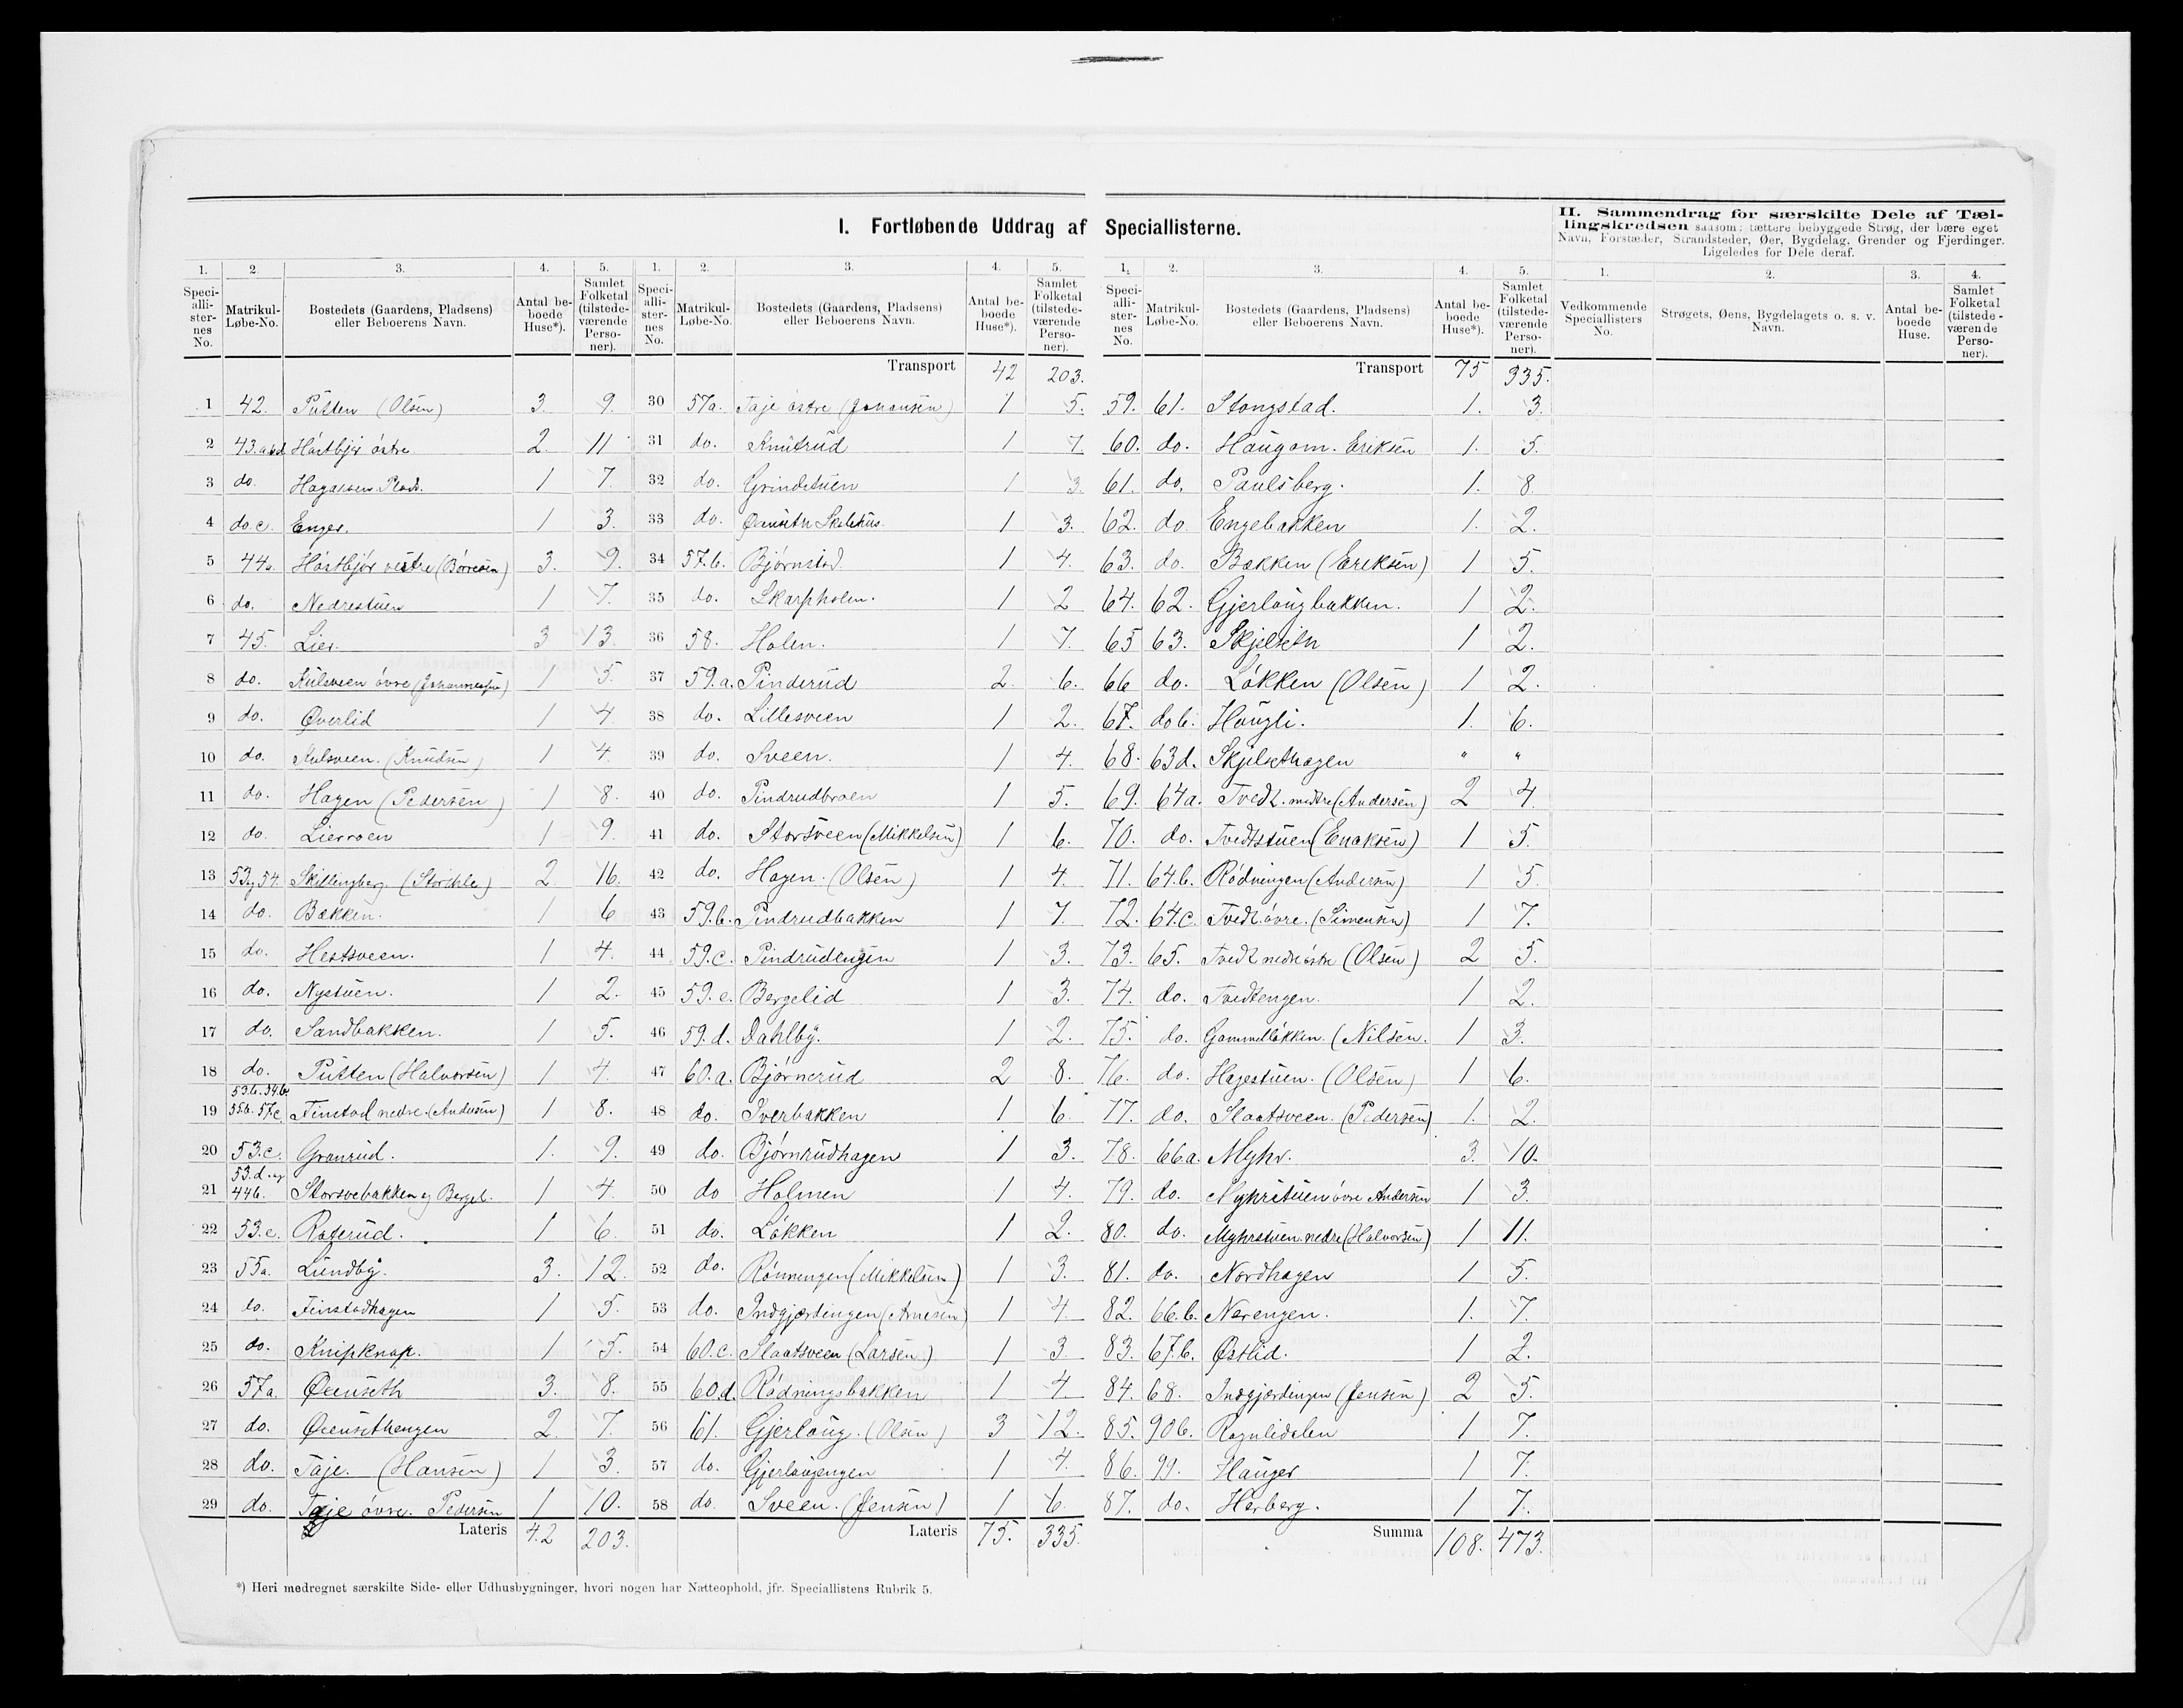 I. Fortløbende Uddrag af Speciallisterne.
II. Sammendrag for særskilte Dele af Tællingskredsen saasom: tættere bebyggede Strøg, der bære eget
Navn, Forstæder, Strandsteder, Øer, Bygdelag, Grender og Fjerdinger.
Ligeledes for Dele deraf.
1. 2. 3. 4. 5.
Speciallisternes No. Matrikul-Løbe-No. Bostedets (Gaardens, Pladsens) eller Beboerens Navn. Antal beboede Huse*). Samlet Folketal (tilstedeværende Personer).
1 42. Putten (Olsen) 3. 9.
2 43.abd Hóstbjór óstre 2. 11
3 do. Hagassen Plads. 1 7.
4 do.c. Enger. 1 3.
5 44a. Hóstbjór vestre (Børresen) 3. 9.
6 do. Nedrestuen 1 7.
7 45. Lier. 3 13.
8 do. Kulsveen óvre (Johannessen) 1 5.
9 do. Øverlid 1 4.
10 do. Kulsveen. (Knudsen) 1 4.
11 do. Hagen (Pedersen) 1 8.
12 do. Lierroen 1 9.
13 53og54. Skillingberg. 2. 16.
14 do. Bækken. 1 6
15 do. Hestsveen. 1 4.
16 do. Nystuen. 1 2.
17 do. Sandbakken. 1 5.
18 do. Putten (Halvorsen) 1 4.
19 53b. 54b. 55b. 57c. Finstad nedre. (Andersen) 1 8.
20 53.c. Granrud. 1. 9.
21 53.d. og 44b. Storsvebakken og Bergel. 1 4.
22 53.e. Roterud. 1 6.
23 55a. Lundby. 3. 12.
24 do. Finstadhagen 1 5.
25 do. Knipknap. 1 5.
26 57a. Øvenseth 3. 8.
27 do. Øvensethengen 2. 7.
28 do. Taje. (Hansen) 1 3.
29 do. Taje óvre. Pedersen 1 10.
Lateris 42 203.
1. 2. 3. 4. 5.
Speciallisternes No. Matrikul-Løbe-No. Bostedets (Gaardens, Pladsens) eller Beboerens Navn. Antal beboede Huse*). Samlet Folketal (tilstedeværende Personer).
Transport 42 203.
30 57a. Taje óstre (Johansen) 1 5.
31 do. Knutrud 1 7.
32 do. Grindstuen 1 3.
33 do. Øvenseth Skolehus. 1 3.
34 57.b. Bjørnstad. 1 4.
35 do. Skarpholen. 1 2
36 58. Holen. 1 7.
37 59.a. Pinderud 2. 6.
38 do. Lillesveen 1 2.
39 do. Sveen. 1 4.
40 do. Pindrudbroen 1 5.
41 do. Storsveen (Mikkelsen) 1 6.
42 do. Hagen. (Olsen) 1 4.
43 59.b. Pindrudbakken 1 7.
44 59.c. Pindrudengen 1 3.
45 59.e. Bergelid 1 3.
46 59.d. Dahlby. 1 2.
47 60.a. Bjørnerud 2 8.
48 do. Tverbakken 1 6
49 do. Bjørnrudhagen 1 3.
50 do Holmen 1 4.
51 do. Lókken 1 2.
52 do. Rónningen (Mikkelsen) 1 3.
53 do. Indgjærdingen (Arnesen) 1 4.
54 60.c. Slaatsveen (Larsen.) 1 3
55 60.d. Ródningsbakken 1 4
56 61. Gjerlaug. (Olsen) 3 12.
57 do. Gjerlaugengen 1 4.
58 do. Sveen. (Jensen) 1 6.
Lateris 75. 335.
1. 2. 3. 4. 5.
Speciallisternes No. Matrikul-Løbe-No. Bostedets (Gaardens, Pladsens) eller Beboerens Navn. Antal beboede Huse*). Samlet Folketal (tilstedeværende Personer).
Transport 75 335.
59. 61. Stangstad. 1. 3.
60. do. Haugom. Eriksen 1. 5.
61. do. Paulsberg. 1. 8.
62. do. Engebakken 1. 2.
63. do. Bækken (Eriksen) 1 5.
64. 62. Gjerlaugbakken. 1 2.
65 63. Skjelseth 1 2.
66 do. Lókken (Olsen) 1 2.
67. do b. Haugli. 1. 6.
68. 63d. Skjelsethagen " "
69. 64a. Tvedt. midtre (Andersen) 2 4.
70. do. Tvedtstuen (Enoksen) 1 5.
71. 64.b. Ródningen (Andersen) 1 5.
72. 64.c. Tvedt óvre. (Simensen) 1 7.
73. 65. Tvedt nedre óstre (Olsen) 2 5.
74. do. Tvedtengen. 1 2.
75. do. Gammellókken. (Nilsen. 1 3.
76. do. Hagestuen. (Olsen) 1 6.
77. do. Slaatsveen. (Pedersen) 1. 2.
78. 66a. Myhr. 3. 10.
79. do. Myhrstuen óvre Andersen 1 3.
80. do. Myhrstuen nedre (Halvorsen) 1 11.
81. do. Nordhagen 1 5.
82. 66.b. Nerengen. 1. 7.
83. 67.b. Østlid. 1 2.
84. 68. Indgjærdingen (Jensen) 2 5.
85. 90b. Rognlidalen 1 7.
86. 99. Hauger 1 7.
87. do. Herberg. 1 7.
Summa 108. 473.
1. 2. 3. 4.
Vedkommende Speciallisters No. Strøgets, Øens, Bygdelagets o. s. v. Navn. Antal beboede Huse. Samlet Folketal (tilstedeværende Personer).
*) Heri medregnet særskilte Side- eller Udhusbygninger, hvori nogen har Natteophold, jfr. Speciallistens Rubrik 5.